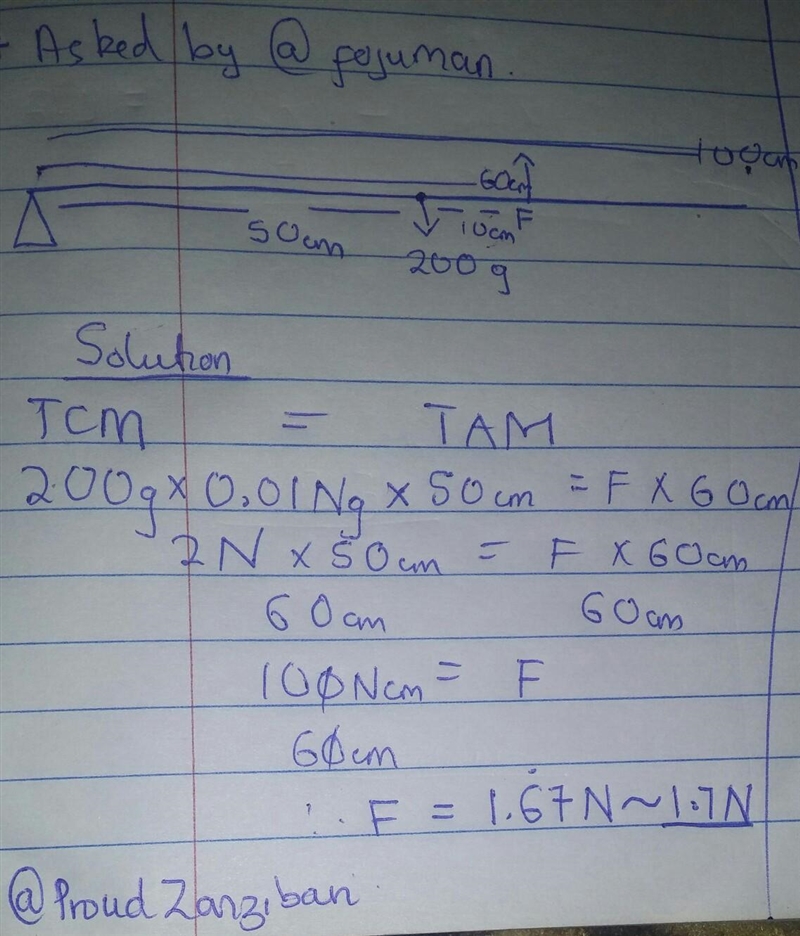 Asked by @ fejuman.
100cm
60cm
50cm
10cm F
200g
Solution
TCM = TAM
200g x 0.01Ng x 50cm = F x 60cm
2N x 50cm = F x 60cm
60cm 60cm
100Ncm = F
60cm
∴ F = 1.67N ~ 1.7N
@Proud Zanziban